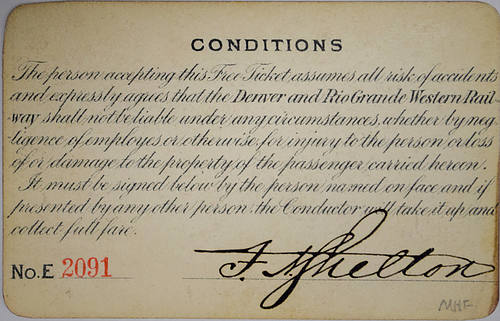 CONDITIONS
The person accepting this Free Ticket assumes all risk of accidents
and expressly agrees that the Denver and Rio Grande Western Rail-
way shall not be liable under any circumstances, whether by neg-
ligence of employes or otherwise, for injury to the person, or loss
of or damage to the property of the passenger carried hereon.
It must be signed below by the person named on face and if
presented by any other person the Conductor will take it up and
collect full fare.
No. E 2091 F. N. Shelton
MHF